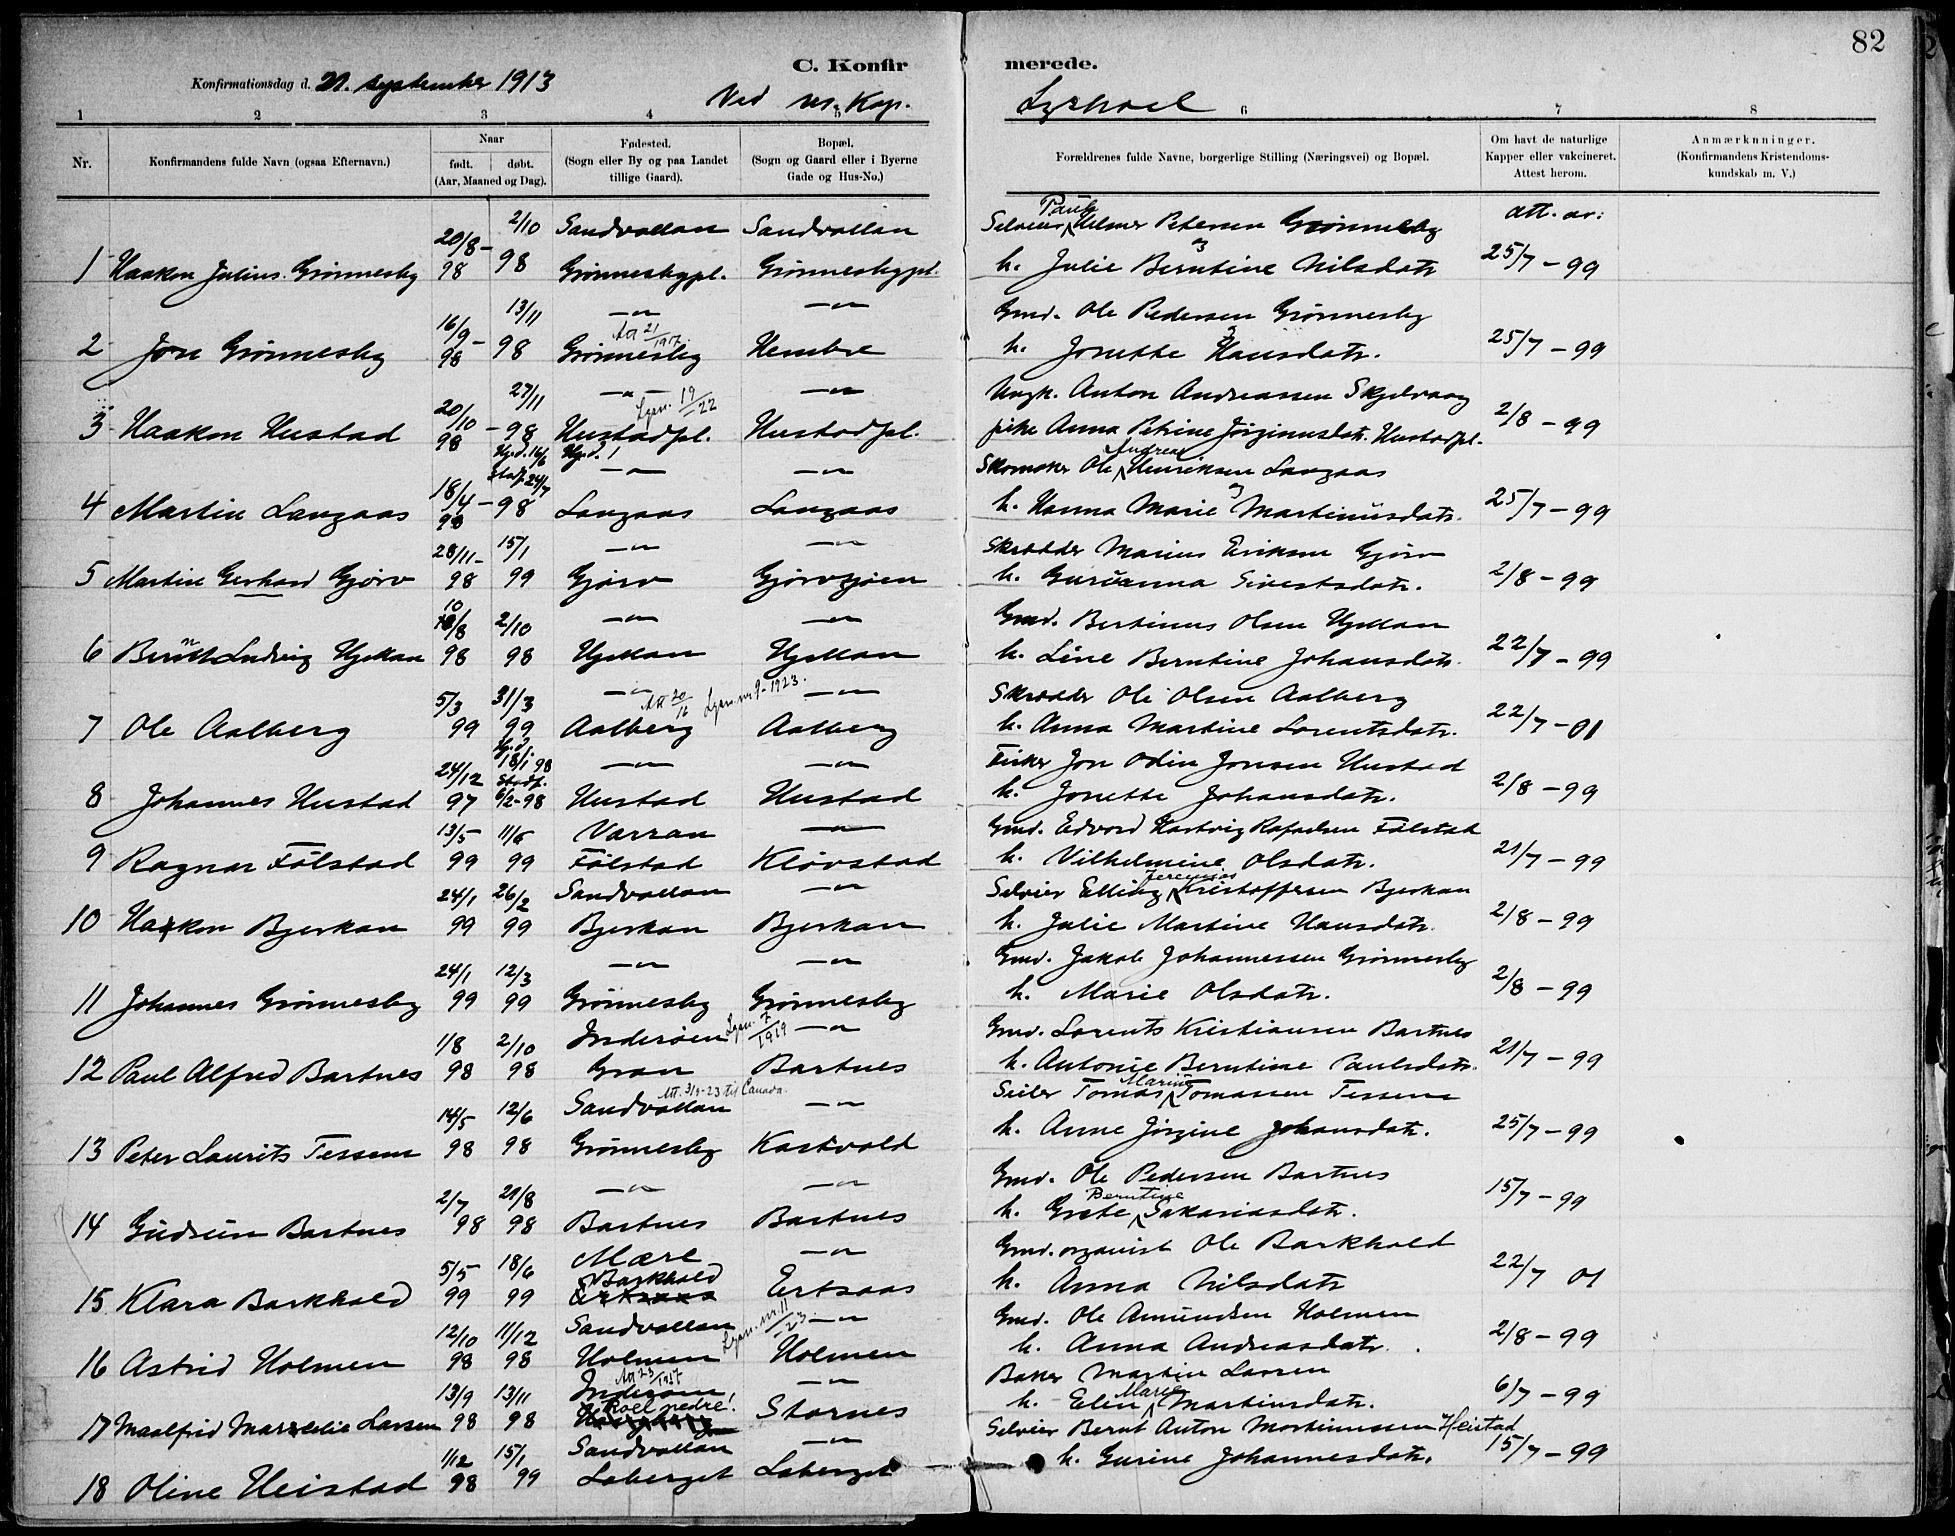 82
C. Konfirmerede.
Konfirmationsdag d. 21. september 1913
Ved res. Kap.
1 2 3 4 5 6 7 8
Nr.
Konfirmandens fulde Navn (ogsaa Efternavn.)
Naar
født. døbt.
(Aar, Maaned og Dag).
Fødested.
(Sogn eller By og paa Landet
tillige Gaard).
Bopæl.
(Sogn og Gaard eller i Byerne
Gade og Hus-No.)
Forældrenes fulde Navne, borgerlige Stilling (Næringsvei) og Bopæl.
Om havt de naturlige
Kapper eller vakcineret.
Attest herom.
Anmærkninger.
(Konfirmandens Kristendoms-
kundskab m. V.)
20/8- 2/10 Sandvollan Sandvollan Selveier Paul Helmer Petersen Grønnesby att. av:
1 Haakon Julius Grønnesby 98 98 Grønnesbypl. Grønnesbypl. h. Julie Berntine Nilsdatr 25/7-99
16/9- 13/11 -"- -"- Gmd. Ole Pedersen Grønnesby
Att 21/1917
2 Jon Grønnesby 98 98 Grønnesby Hembre h. Jonette Hansdatr. 25/7-99
20/10- 27/11 -"- -"- Ungk. Anton Andreassen Skjelvaag
19/22
3 Haakon Hustad 98 98 Hustadpl. Hustadpl. pike Anna Petrine Jørginusdatr. Hustadpl. 2/8-99
Hjd. 14/6 Hjd.!
18/4- Stadf 24/7 -"- -"- Skomaker Ole Andreas Henriksen Langaas
4 Martin Langaas 98 98 Langaas Langaas h. Hanna Marie Martinusdatr. 25/7-99
28/11- 15/1 -"- -"- Skrædder Marius Eriksen Gjørv
5 Martin Gerhard Gjørv 98 99 Gjørv Gjørvsjøen h. Gurianna Sivertsdatr. 2/8-99
10/8 2/10 -"- -"- Gmd. Bertinus Olsen Hjellan
6 Bernt Ludvig Hjellan 98 98 Hjellan Hjellan h. Line Berntine Johansdatr. 22/7-99
5/3 31/3 -"- Att 20/16 -"- Skrædder Ole Olsen Aalberg
7 Ole Aalberg 99 99 Aalberg Aalberg h. Anna Martine Lorentsdatr. 22/7-01
Hjd. 18/1 98
24/12 Stadf. -"- -"- Fisker Jon Odin Jonsen Hustad
8 Johannes Hustad 97 6/2-98 Hustad Hustad h. Jonette Johansdatr. 2/8-99
13/5 11/6 Værran -"- Gmd. Edvard Hartvig Rafaelsen Følstad
9 Ragnar Følstad 99 99 Følstad Kløvstad h. Vilhelmine Olsdatr. 21/7-99
24/1 26/2 Sandvollan -"- Selveier Elling Jeremias Kristoffersen Bjerkan
10 Haakon Bjerkan 99 99 Bjerkan Bjerkan h. Julie Martine Hansdatr. 2/8-99
24/1 12/3 -"- -"- Gmd. Jakob Johannessen Grønnesby
11 Johannes Grønnesby 99 99 Grønnesby Grønnesby h. Marie Olsdatr. 2/8-99
1/8 2/10 Inderøen 7/1919 -"- Gmd. Lorents Kristiansen Bartnes
12 Paul Alfred Bartnes 98 98 Gran Bartnes h. Antonie Berntine Paulsdatr. 21/7-99
Att. 3/4-23 til Canada.
14/5 12/6 Sandvollan -"- Seiler Tomas Marius Tomassen Tessem
13 Peter Laurits Tessem 98 98 Grønnesby Kastvold h. Anne Jørgine Johansdatr. 25/7-99
2/7 21/8 -"- -"- Gmd. Ole Pedersen Bartnes
14 Gudrun Bartnes 98 98 Bartnes Bartnes h. Grete Berntine Sakariasdatr. 15/7-99
5/5 18/6 Mære -"- Gmd. organist Ole Barkhald
Barkhald
15 Klara Barkhald 99 99 Ertsaas Ertsaas h. Anna Nilsdatr 22/7 01
12/10 11/12 Sandvollan -"- Gmd. Ole Amundsen Holmen
16 Astrid Holmen 98 98 Holmen Holmen h. Anna Andreasdatr. 2/8-99
Att 23/1917
13/9 13/11 Inderøen -"- Baker Martin Larsen
Roel nedre!
17 Maalfrid Marselie Larsen 98 98 Stornes h. Elen Marie Martinusdatr. 6/7-99
1/12 15/1 Sandvollan -"- Selveier Bernt Anton Martinussen Heistad
18 Oline Heistad 98 99 Leberget Leberget h. Gurine Johannesdatr. 15/7-99